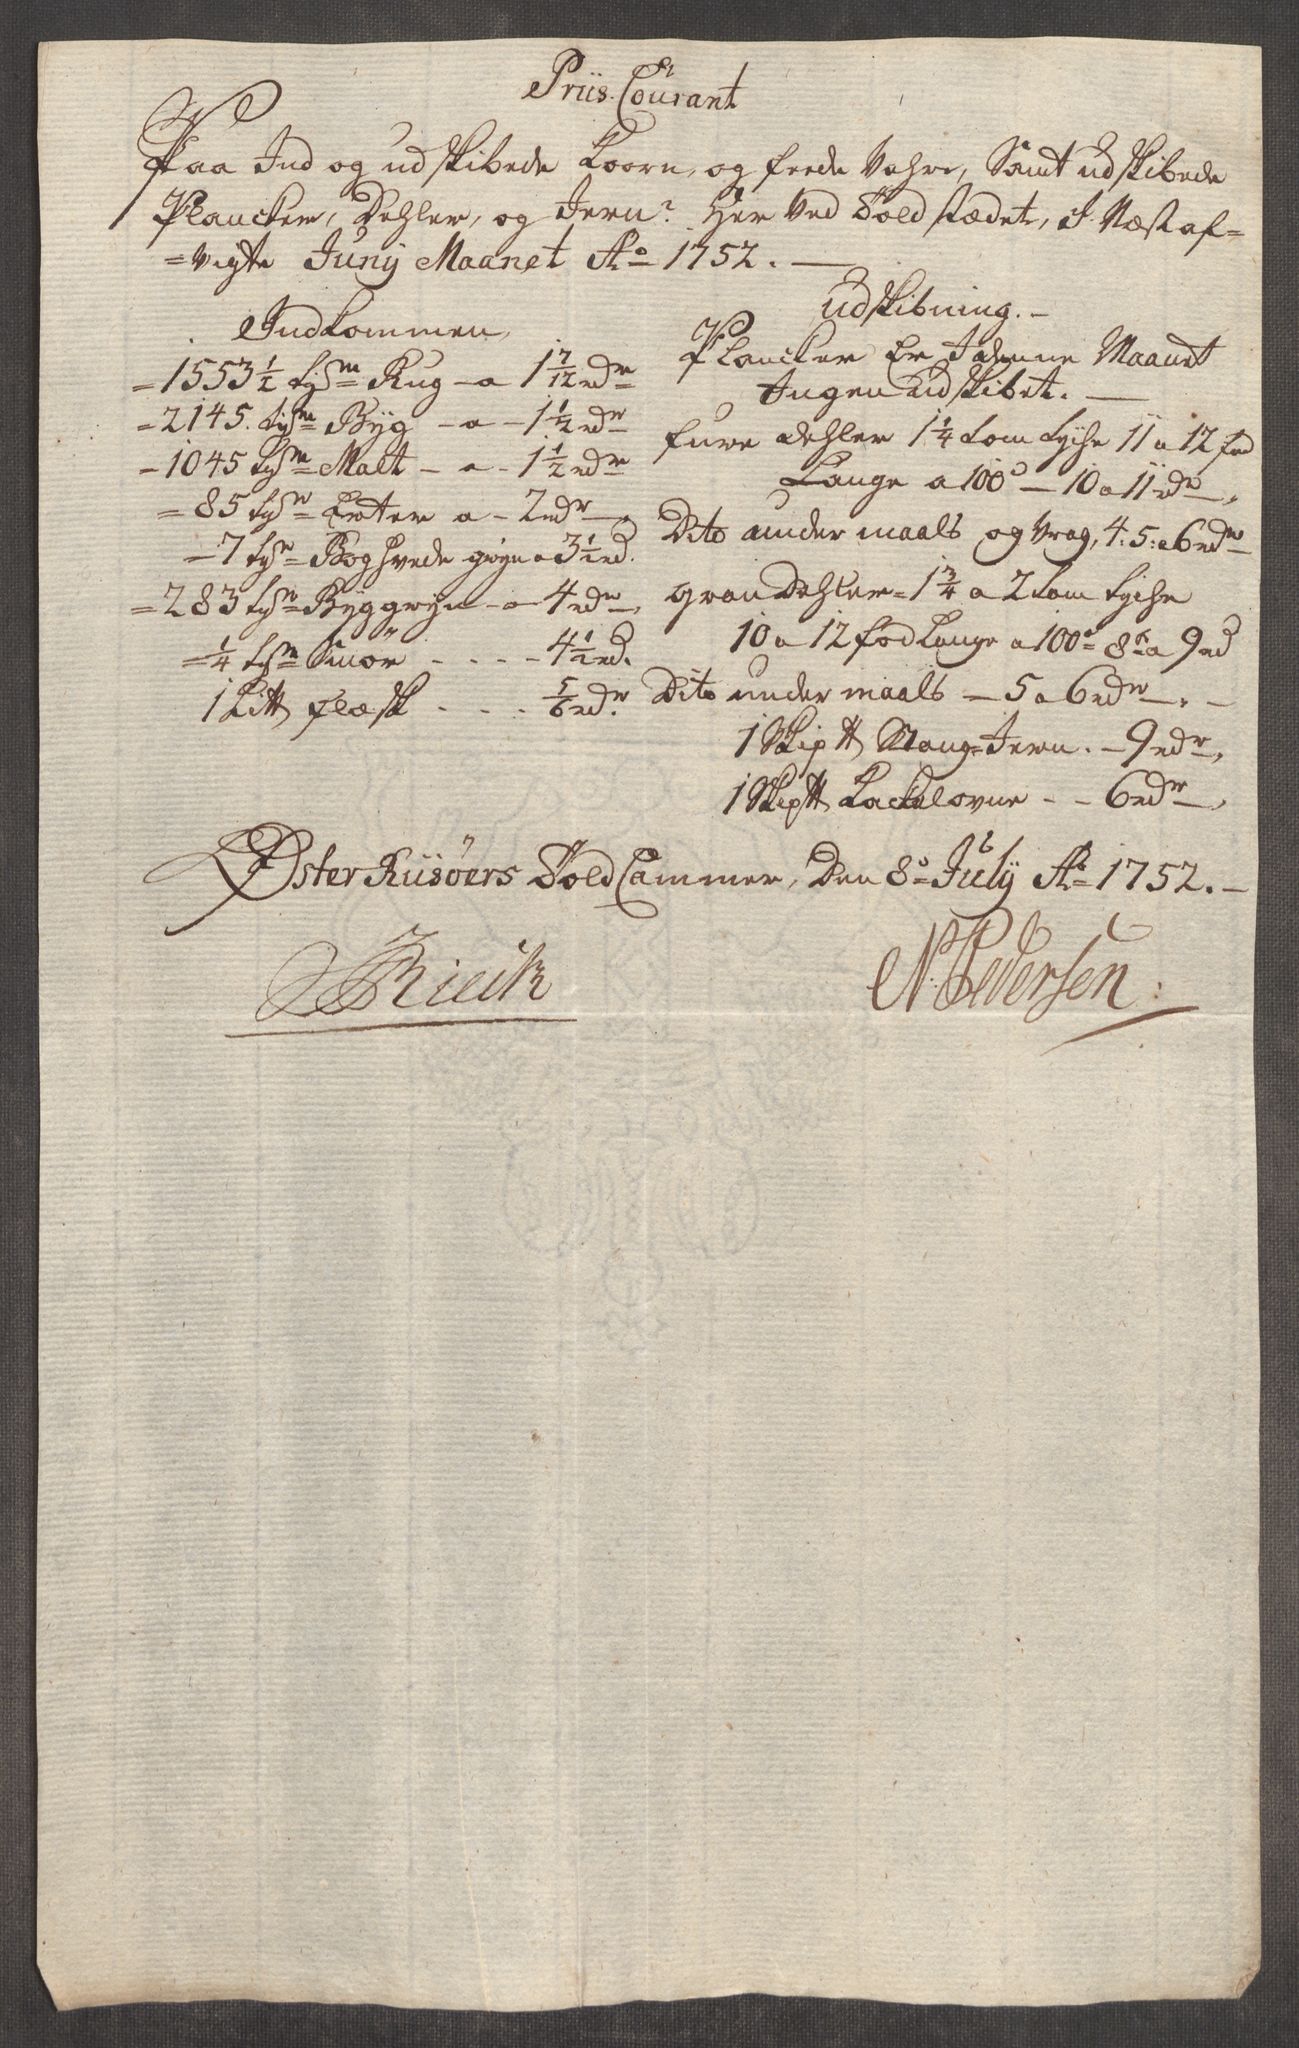 Priis Courant
Paa Ind og udskibede Koorn, og feede Vahre, Samt udskibede
Plancker, Dehler, og Jern? Her Ved Toldstædet, I Næst af=
=vigte Junij Maanet Ao 1752. —
Indkommen
=1553 1/2 tr Rug - a 1 7/12 rdr
=2145. tr Byg - a - 1 1/2 rdr
-1045 tr Malt - a - 1 1/2 rdr
=85 tr Erter a - 2 rdr
-7 tr Boghvede gryn a 3 1/2 rd.
=283 tr Byggryn - a 4 rdr
=1/4 tr Smör - - - - 4 1/2 rd.
1 Litt flæsk - - - 5/6 rdr
udskibning. -
Plancker Er I denne Maanet
Ingen udskibet. —
fure dehler 1 1/4 tom tyche 11 a 12 fod
Lange a 100d — 10 a 11 rdr
Dito under maals og Vrag, 4: 5: a 6 rdr
gran Dehler = 1 3/4 a 2 tom tyche
10 a 12 fod Lange a 100d 8 a 9 rd
Dito under maals — 5 a 6 rdr -
1 Skip tt Stang=Jern. - 9 rdr
1 Skip tt Kackelovne - - 6 rdr
Öster Riisöers Told Cammer, Den 8de July Ao 1752. -
N. Pedersen